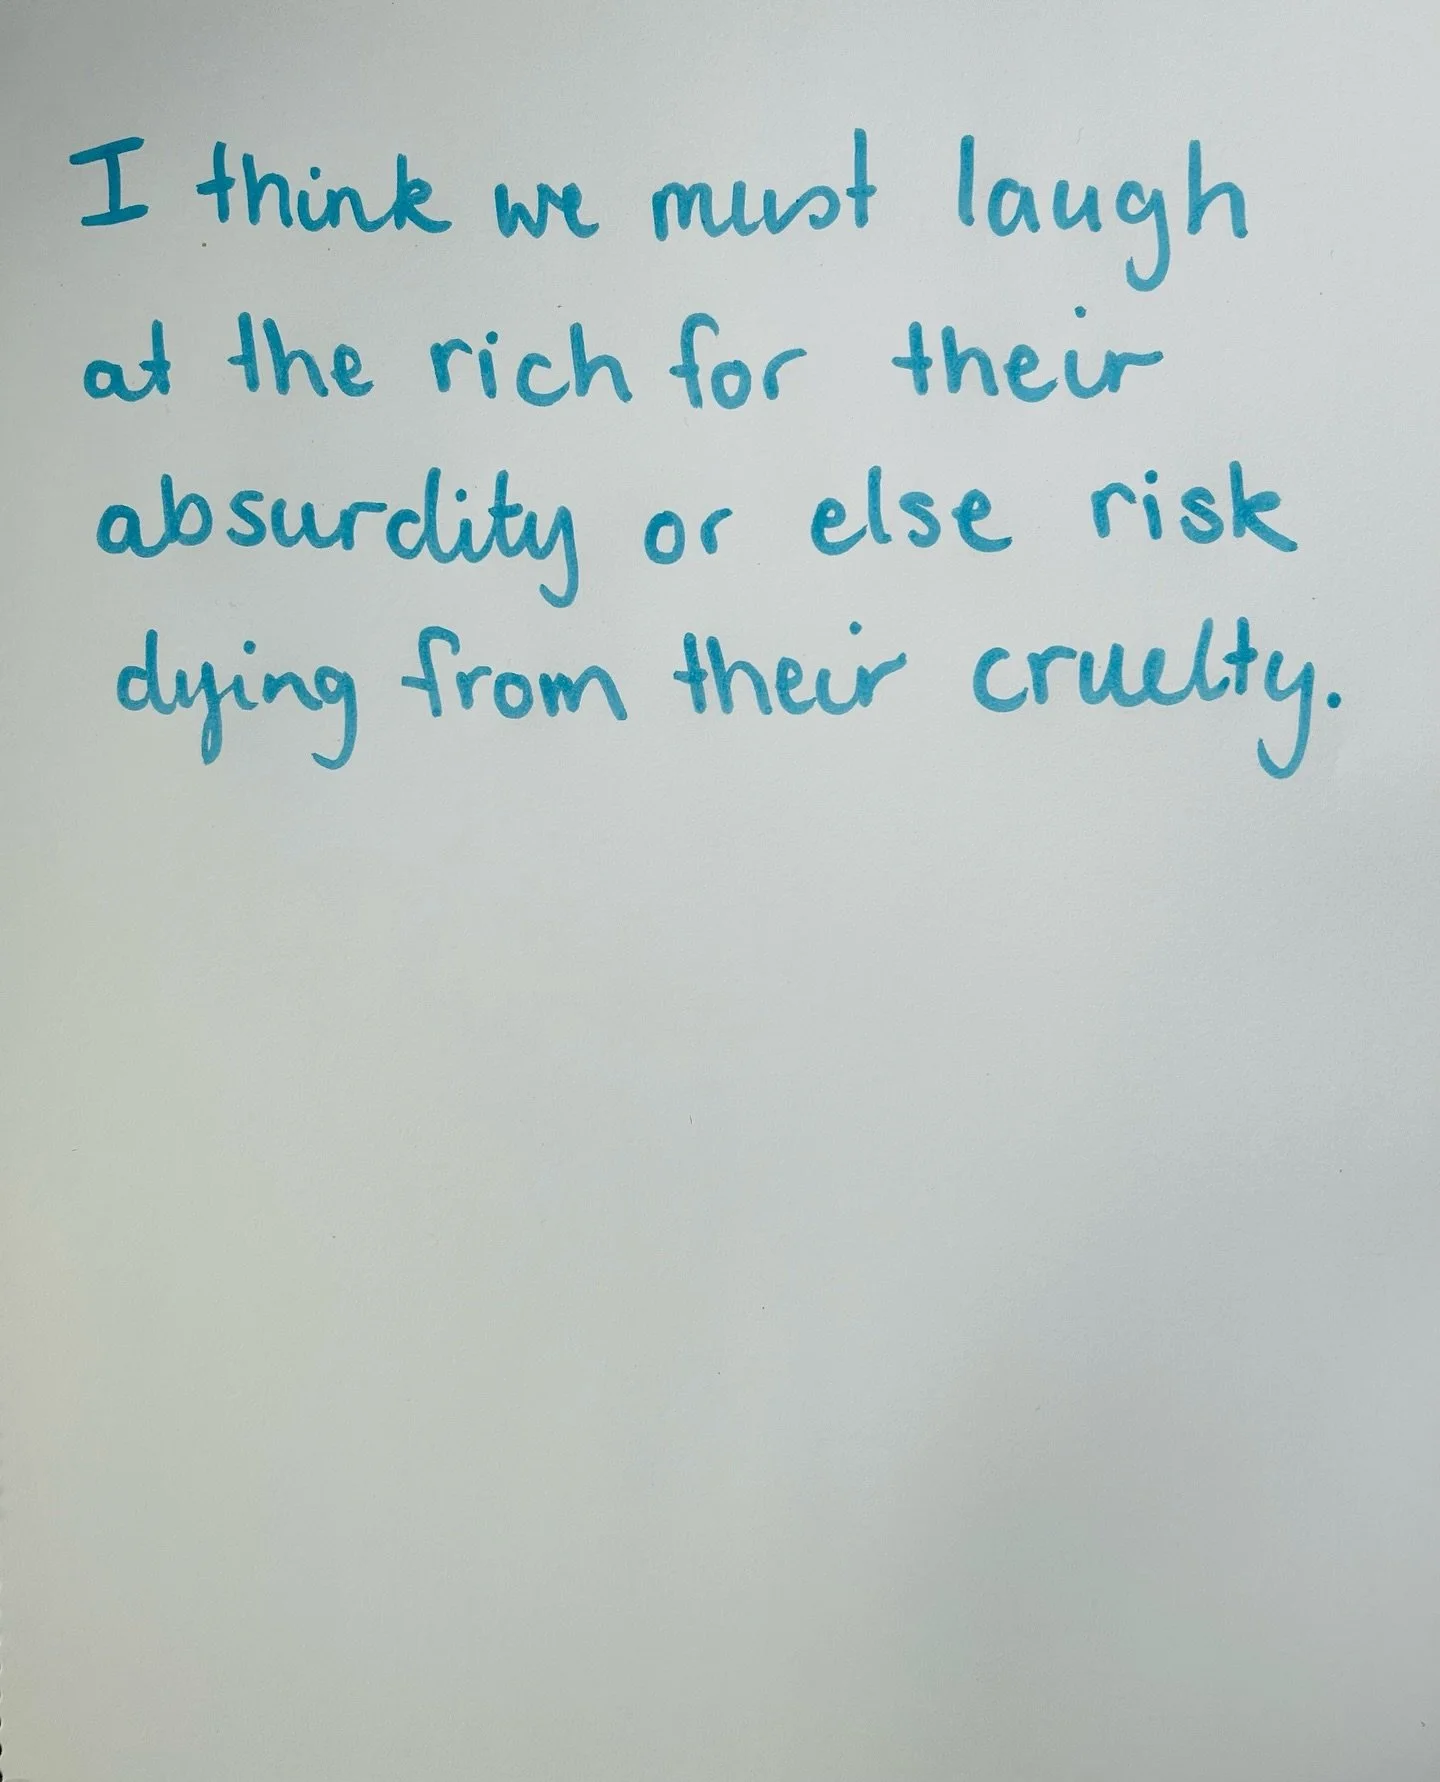 I think we must laugh
at the rich for their
absurdity or else risk
dying from their cruelty.